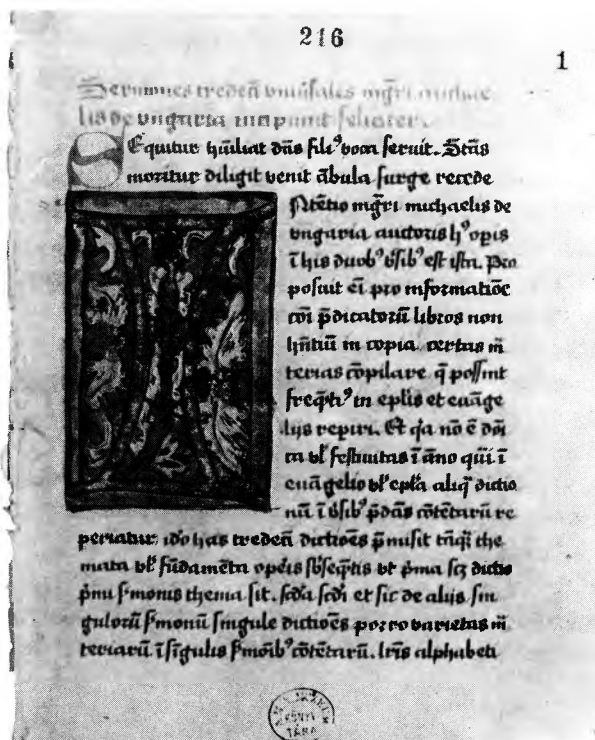 216
1
Sermones tredecī vniūsales mgr̄i michae
lis de vngaria incipiunt feliciter.
Sequitur hūiliat dn̄s filiꝰ vocat seruit. Stās
moritur diligit venit ābula surge recede
Ntētio mgr̄i michaelis de
vngaria auctoris hꝰ opis
ī his duobꝰ vsibꝰ est ista. Pro
posuit eī pro informatiōe
cōi p̄dicatorū libros non
hn̄tiū in copia certas m̄
terias cōpilare q̄ possint
freq̄tiꝰ in eplīs et euāge
lijs reperiri. Et q̄a nō ē dn̄i
ca vl̄ festiuitas ī āno qūi ī
euāgelio vl̄ epl̄a aliq̄ dictio
nū ī vsibꝰ p̄dc̄is cōtētarū re
periatur. ido has tredecī dictiōes p̄misit tāq̄ the
mata vl̄ fūdamēta opeis sb̄seq̄tis vt p̄ma scz dictio
p̄mi s̄monis thema sit. scd̄a scd̄i et sic de alijs sin
gulorū s̄monū singule dictiōes porro varietas m̄
teriarū ī sīgulis s̄moībꝰ cōtētarū. lr̄is alphabeti
KÖNYV
TÁRA